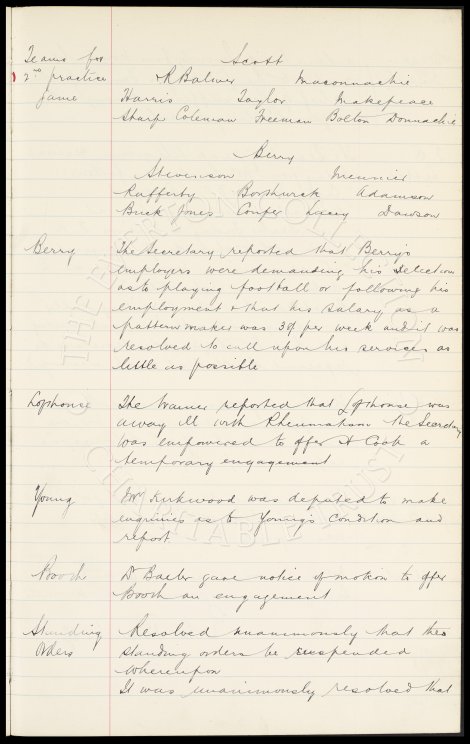 Teams for
2nd practice
game
Scott
R Balmer Maconnachie
Harris Taylor Makepeace
Sharp Coleman Freeman Bolton Donnachie
Berry
Stevenson Meunier
Rafferty Borthwick Adamson
Buck Jones Couper Lacey Dawson
Berry
The Secretary reported that Berry's
employers were demanding his selection
as to playing football or following his
employment & that his salary as a
pattern maker was 39/ per week and it was
resolved to call upon his services as
little as possible
Lofthouse
The trainer reported that Lofthouse was
away ill with Rheumatism the Secretary
was empowered to offer A Cook a
temporary engagement
Young
Mr Kirkwood was deputed to make
enquiries as to Young's condition and
report
Booth
Dr Baxter gave notice of motion to offer
Booth an engagement
Standing
Orders
Resolved unanimously that the
standing orders be suspended
whereupon
It was unanimously resolved that
THE EVERTON COLLECTION
CHARITABLE TRUST